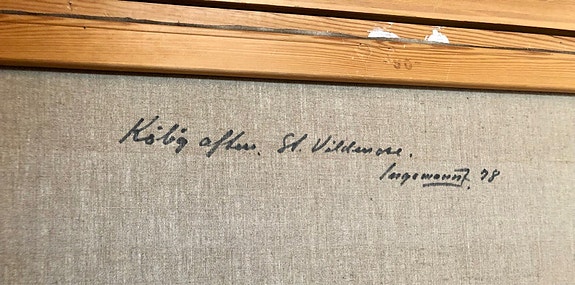 Kølig aften. St. Vildmose.
Ingemann 78